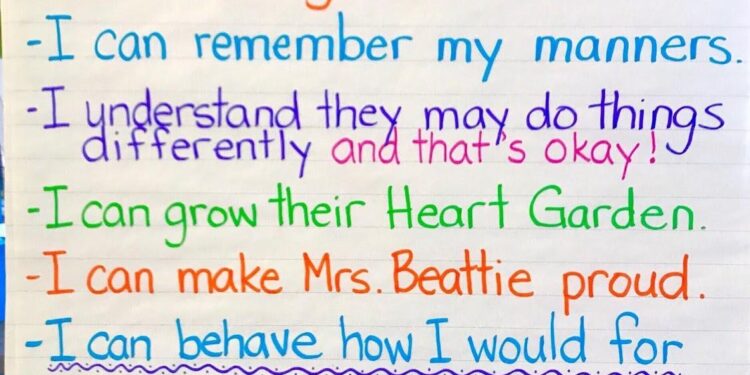 -I can remember my manners.
-I understand they may do things
differently and that's okay!
-I can grow their Heart Garden.
-I can make Mrs. Beattie proud.
-I can behave how I would for